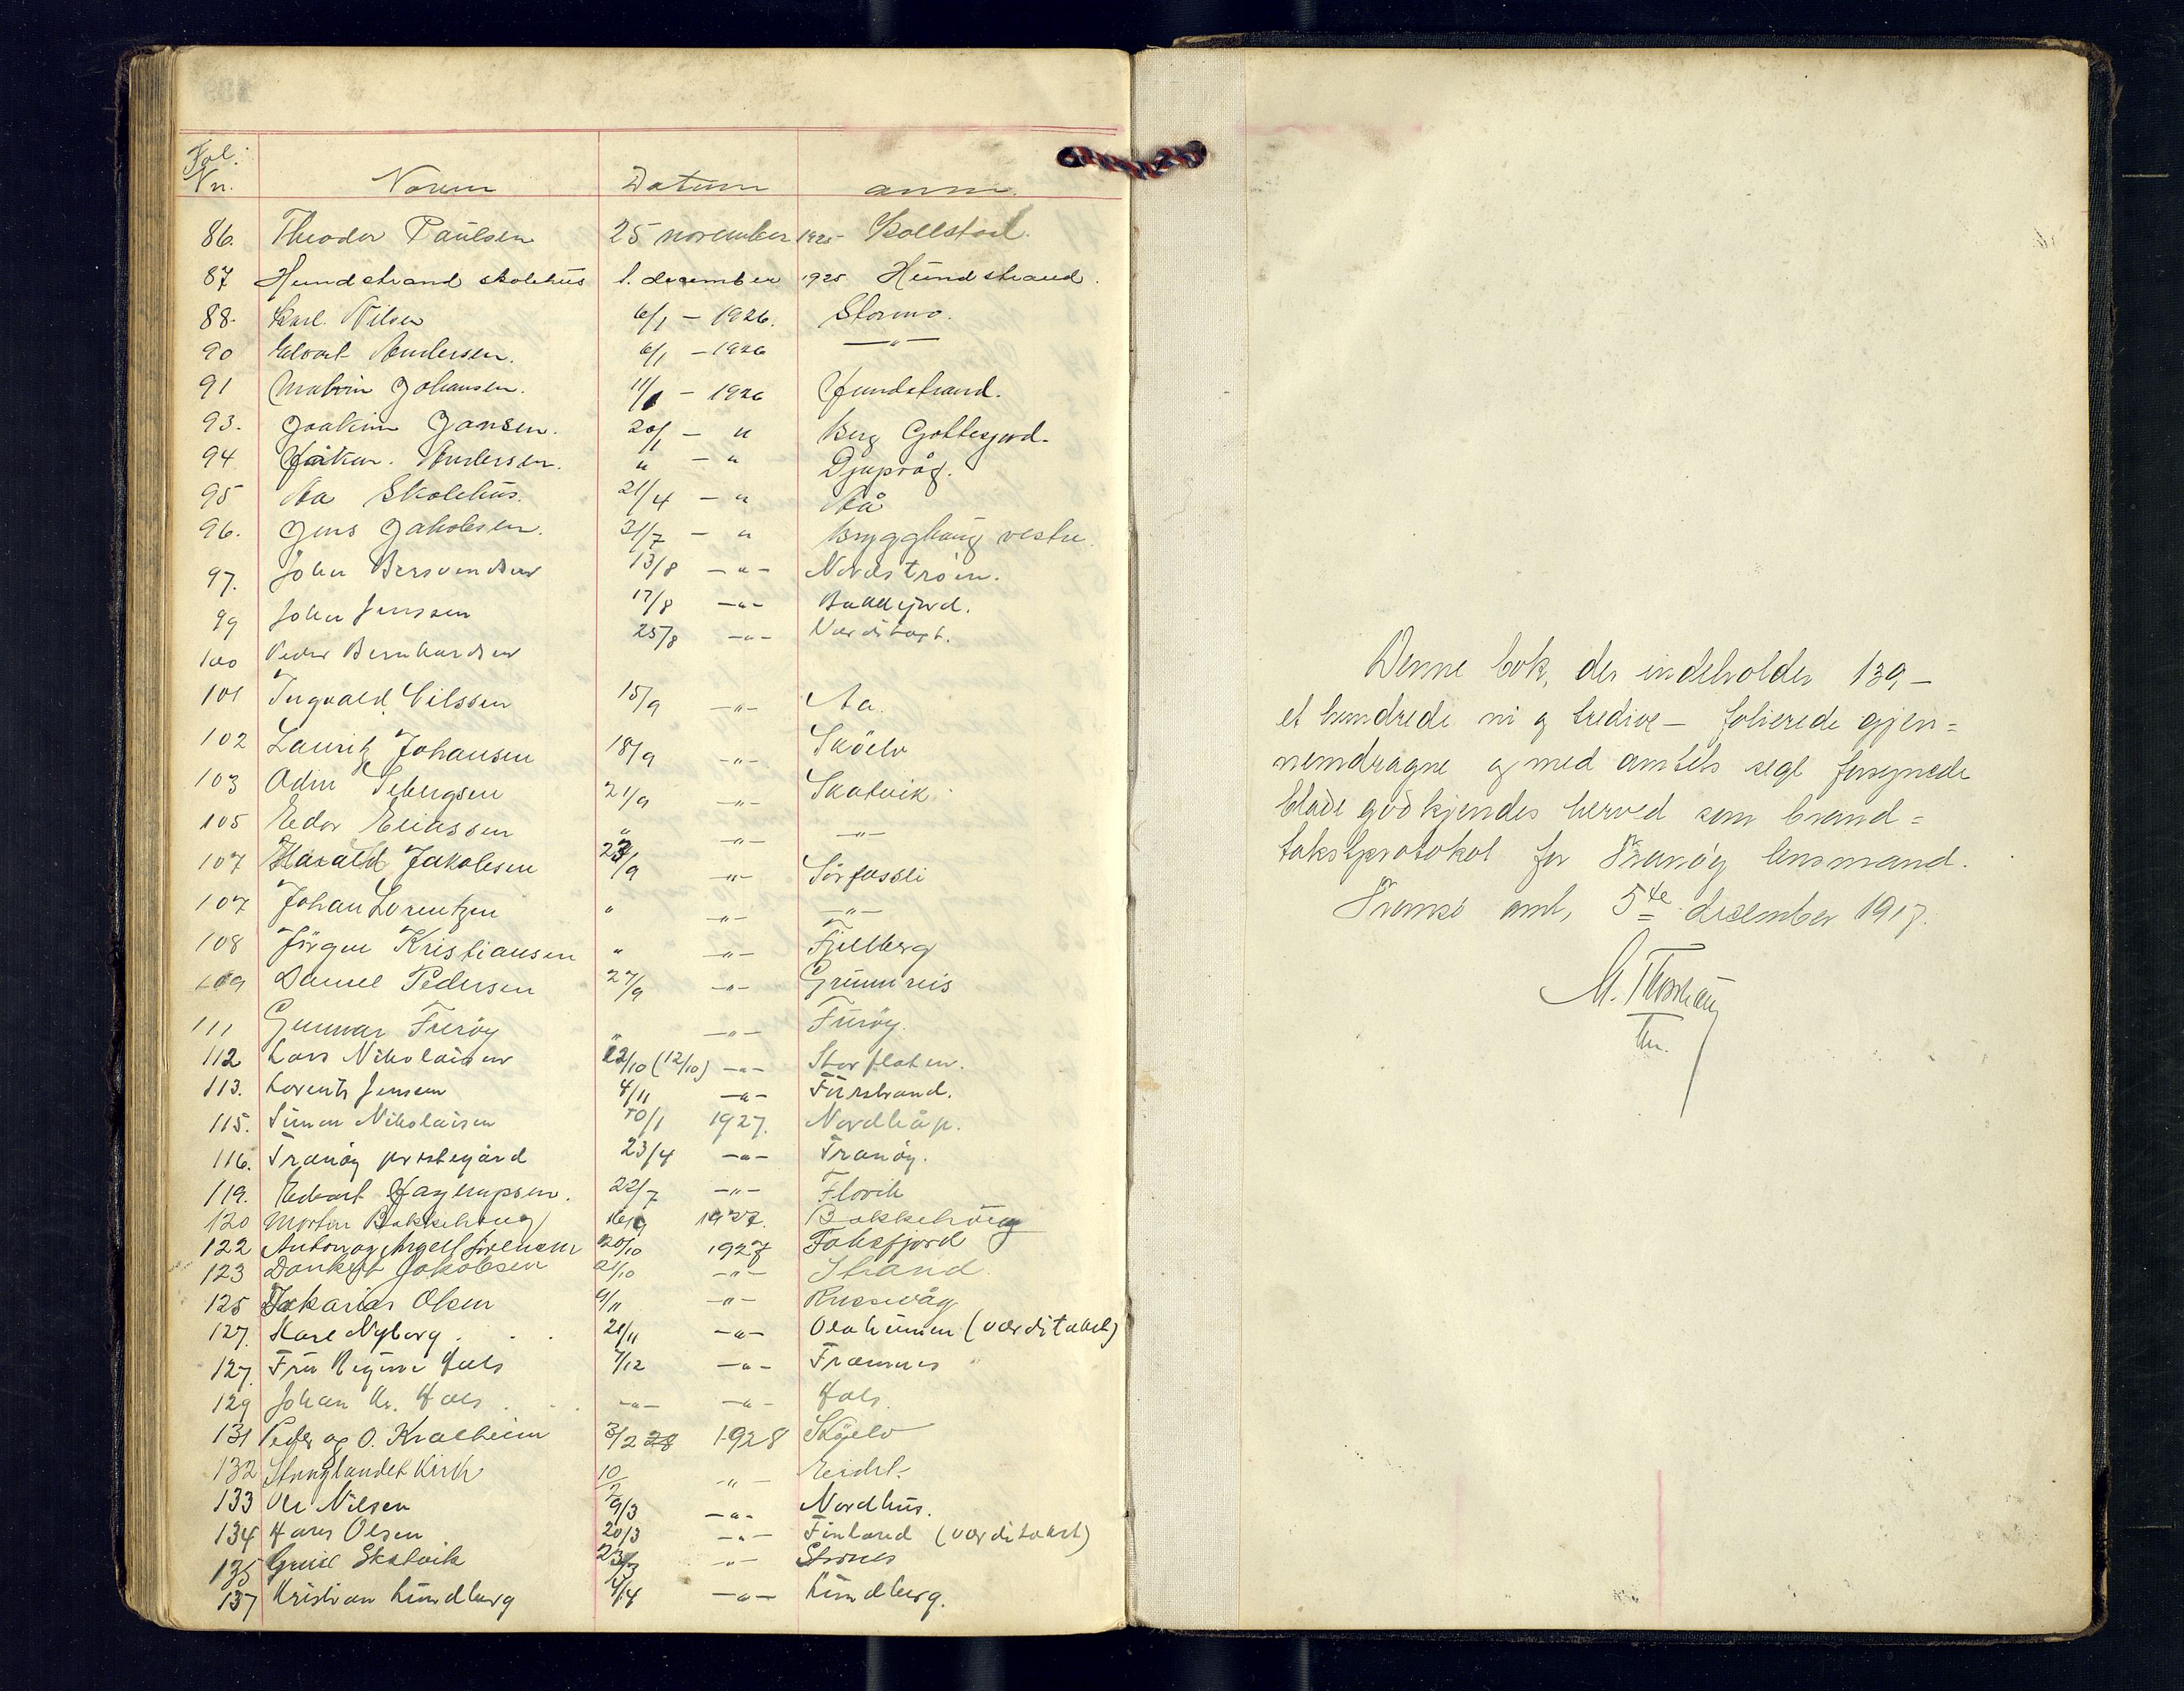 Fol. Nr. Navn Datum anm.
86. Theodor Paulsen 25 november 1925 Kollstad.
87 Hundstrand skolehus 1. desember 1925 Hundstrand.
88. Karl Nilsen 6/1 - 1926. Stormo.
90 Edvart Andersen. 6/1 - 1926 -"-
91 Malvin Johansen. 11/1 - 1926 Hundstrand.
93. Joakim Jansen. 20/1 - " Berg Gottesjord.
94 Håkon. Andersen. " - " Djupvåg.
95 Aa Skolehus. 21/4 - " Aå
96. Jens Jakobsen. 21/7 - " Brygghaug vestre.
97. John Bersvendsen 13/8 -"- Nordstrøm.
99 John Jenssen 17/8 -"- Baltsfjord.
100 Peder Bernhardsen 25/8 -"- Værditaxt.
101 Ingvald Nilssen 15/9 -"- Aa.
102 Lauritz Johansen 18/9 -"- Sköelv
103 Odin Sebergsen 21/9 -"- Skatvik
105 Edor Eliassen " -"- -"-
107 Harald Jakobsen 23/9 -"- Sörfossli
107 Johan Lorentzen " -"- -"-
108 Jörgen Kristiansen " -"- Fjellberg
109 Daniel Pedersen 27/9 -"- Grunnreis
111 Gunnar Furöy " -"- Furöy.
112 Lars Nikolaisen 12/10 (12/10) -"- Storfloten.
113. Lorents Jensen 4/11 -"- Furstrand.
115. Simon Nikolaisen 10/1 1927. Nordhåp.
116. Tranöy prestegård 23/4 -"- Tranöy.
119. Edvart Hagerupsen. 22/7 -"- Flovik
120 Morten Bakkehaug 16/9 1927. Bakkehaug
122 Anton og Angell Sørensen 20/10 1927 Faksfjord
123 Dankert Jakobsen 21/10 -"- Strand.
125 Sakarias Olsen 9/11 -"- Russevåg
127. Karl Nyborg . . . 21/11 -"- Olaheimen (værditakst)
127. Fru Regine Hals 7/12 -"- Frannes "
129 Johan Kr. Hals . . . -"- -"- Hals.
131 Peder og O. Kralheim 3/2 28 1928 Skøelv
132 Stonglandet Kirk 10/2 -"- Eidet.
133 Ole Nilsen 9/3 -"- Nordhus.
134 Hans Olsen 20/3 -"- Finland (værditakst)
135 Emil Skatvik 23/3 -"- Strones
137 Kristian Lundberg 4/4 -"- Lundberg.
Denne bok, der indeholder 139,-
et hundrede ni og tredive - folierede gjen=
nemdragne og med amtets segl forsynede
blade godkjendes herved som brand=
takstprotokol for Tranöy lensmand.
Tromsö amt, 5te desember 1917.
M. Thorshaug
fm.